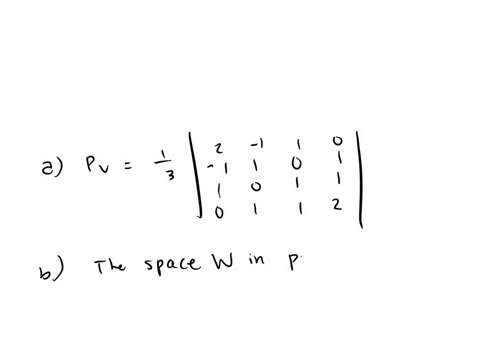 a) Pv = 1/3 | 2 -1 1 0 |
| -1 1 0 1 |
| 1 0 1 1 |
| 0 1 1 2 |
b) The space W in P